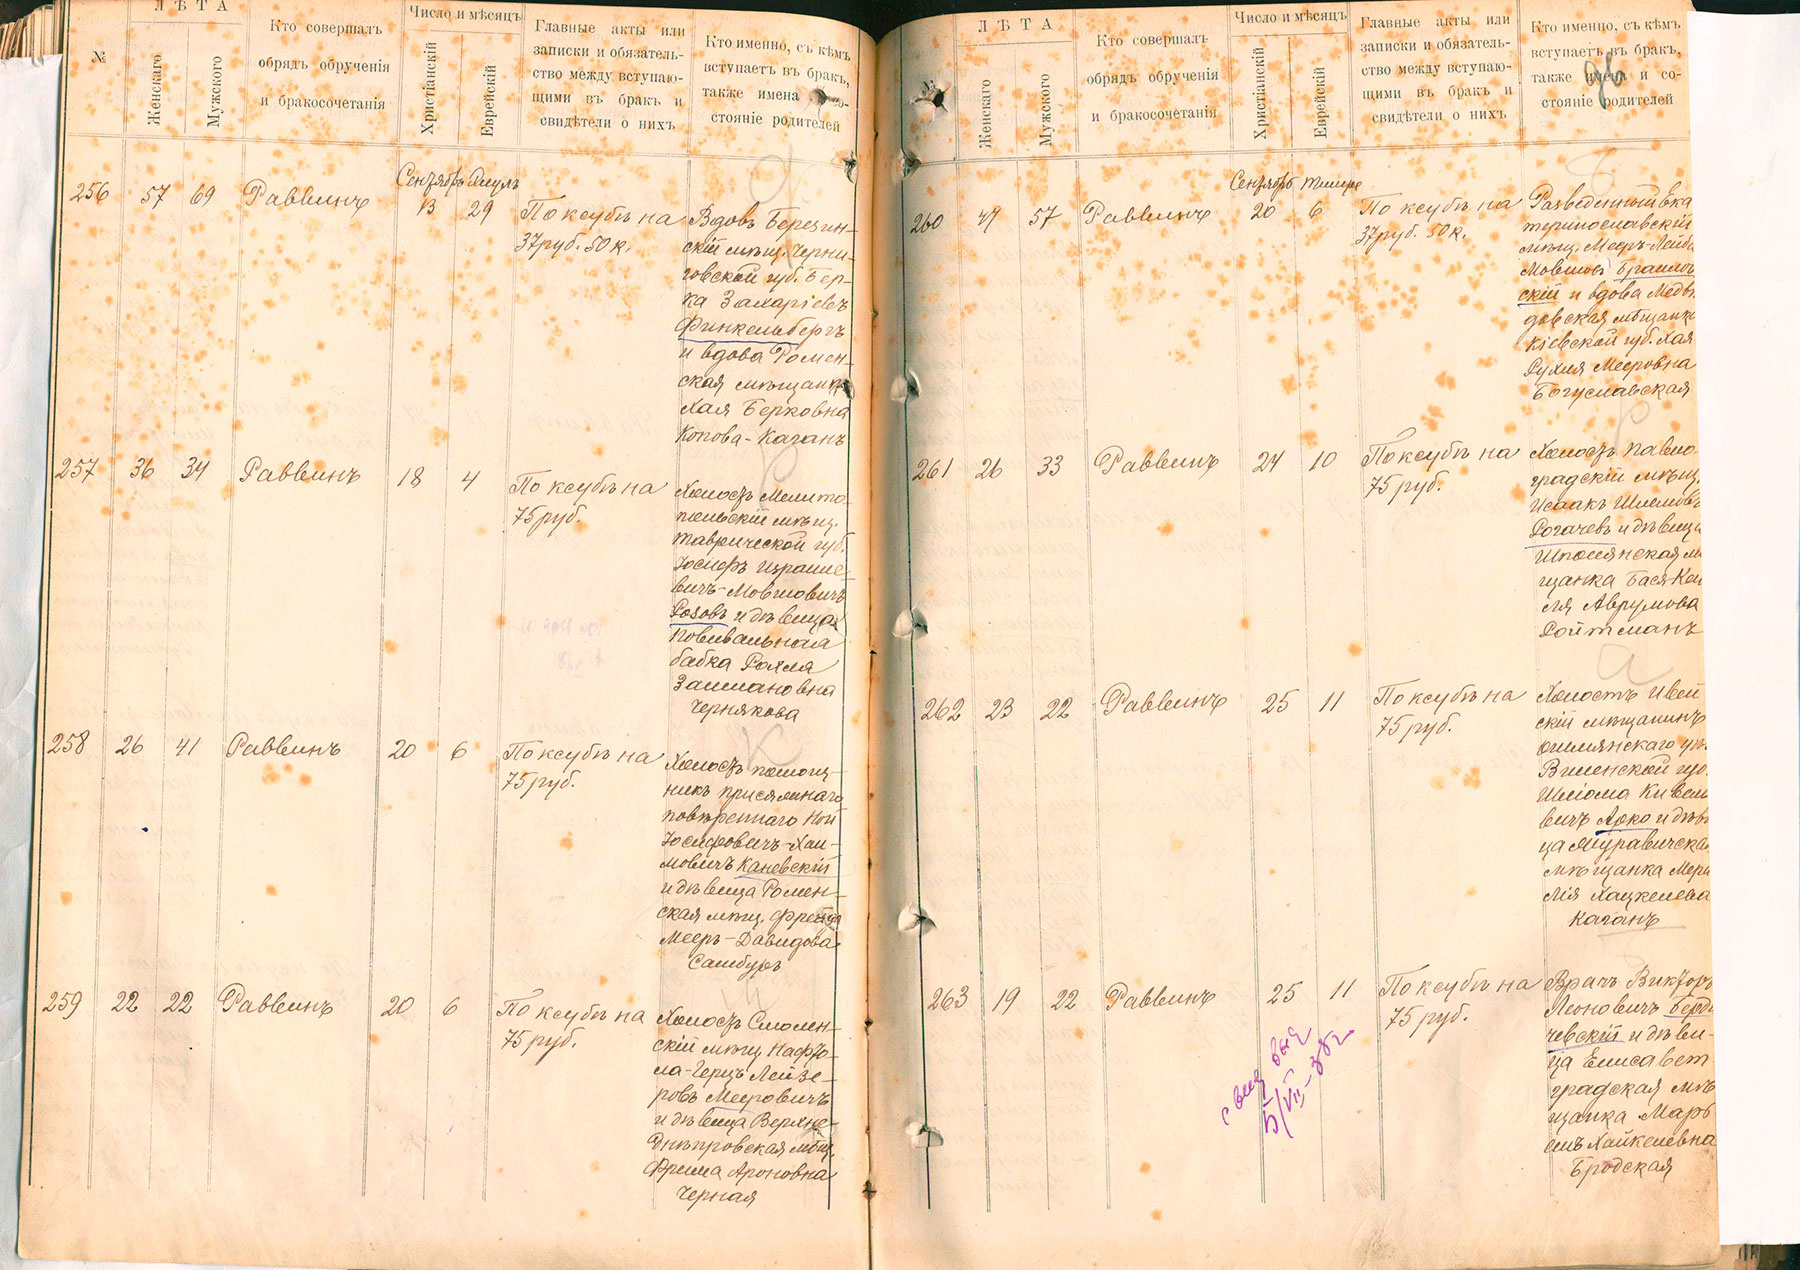 №
ЛѢТА
Женскаго
Мужского
Кто совершалъ
обрядъ обрученія
и бракосочетанія
Число и мѣсяцъ
Христіанскій
Еврейскій
Главные акты или
записки и обязатель-
ство между вступаю-
щими въ бракъ и
свидѣтели о нихъ
Кто именно, съ кѣмъ
вступаетъ въ бракъ,
также имена
стояніе родителей
256 57 69 Раввинъ
Сентябрь
13 29
По ксубѣ на
37 руб. 50 к.
Вдовъ Березин-
скій мѣщ. Черни-
говской губ. Бер-
ка Захаріевъ
Финкельбергъ
и вдова Ромен-
ская мѣщанка
Хая Берковна
Копова-Каганъ
257 36 34 Раввинъ 18 4
По ксубѣ на
75 руб.
Холостъ Мелито-
польскій мѣщ.
Таврической губ.
Іосифъ Израиле-
вичъ-Мовшовичъ
Розовъ и дѣвица
повивальная
бабка Рохля
Залмановна
Чернякова
258 26 41 Раввинъ 20 6
По ксубѣ на
75 руб.
Холостъ помощ-
никъ присяжнаго
повѣреннаго Ной
Іосифовичъ-Хаи-
мовичъ Каневскій
и дѣвица Ромен-
ская мѣщ. Фрейда
Мееръ-Давидова
Самбуръ
259 22 22 Раввинъ 20 6
По ксубѣ на
75 руб.
Холостъ Смолен-
скій мѣщ. Нафто-
ла-Герцъ Лейзе-
ровъ Мееровичъ
и дѣвица Верхне-
Днѣпровская мѣщ.
Фрима Ароновна
Черная
№
ЛѢТА
Женскаго
Мужского
Кто совершалъ
обрядъ обрученія
и бракосочетанія
Число и мѣсяцъ
Христіанскій
Еврейскій
Главные акты или
записки и обязатель-
ство между вступаю-
щими въ бракъ и
свидѣтели о нихъ
Кто именно, съ кѣмъ
вступаетъ въ бракъ,
также имена и со-
стояніе родителей
96
260 47 57 Раввинъ
Сентябрь Тишре
20 6
По ксубѣ на
37 руб. 50 к.
Разведенный Ека
теринославскій
мѣщ. Мееръ-Лейба
Мовшовъ Браилов
скій и вдова Медвѣ
довская мѣщанка
Кіевской губ. Хая
Рухля Мееровна
Богуславская
261 26 33 Раввинъ 24 10
По ксубѣ на
75 руб.
Холостъ Павло-
градскій мѣщ.
Исаакъ Шлемовъ
Рогачевъ и дѣвица
Шполянская мѣ
щанка Бася-Кей
ля Аврумова
Ройтманъ
262 23 22 Раввинъ 25 11
По ксубѣ на
75 руб.
Холостъ Ивей
скій мѣщанинъ
Ошмянскаго уѣ.
Виленской губ.
Шліома
вичъ Арко и дѣви
ца
мѣщанка
Хацкелева
Каганъ
263 19 22 Раввинъ 25 11
По ксубѣ на
75 руб.
Врачъ Викторъ
Леоновичъ Берди
чевскій и дѣви-
ца Елисавет
градская мѣ
щанка Марь
емъ Хайкелевна
Бродская
5/VII-38 г.